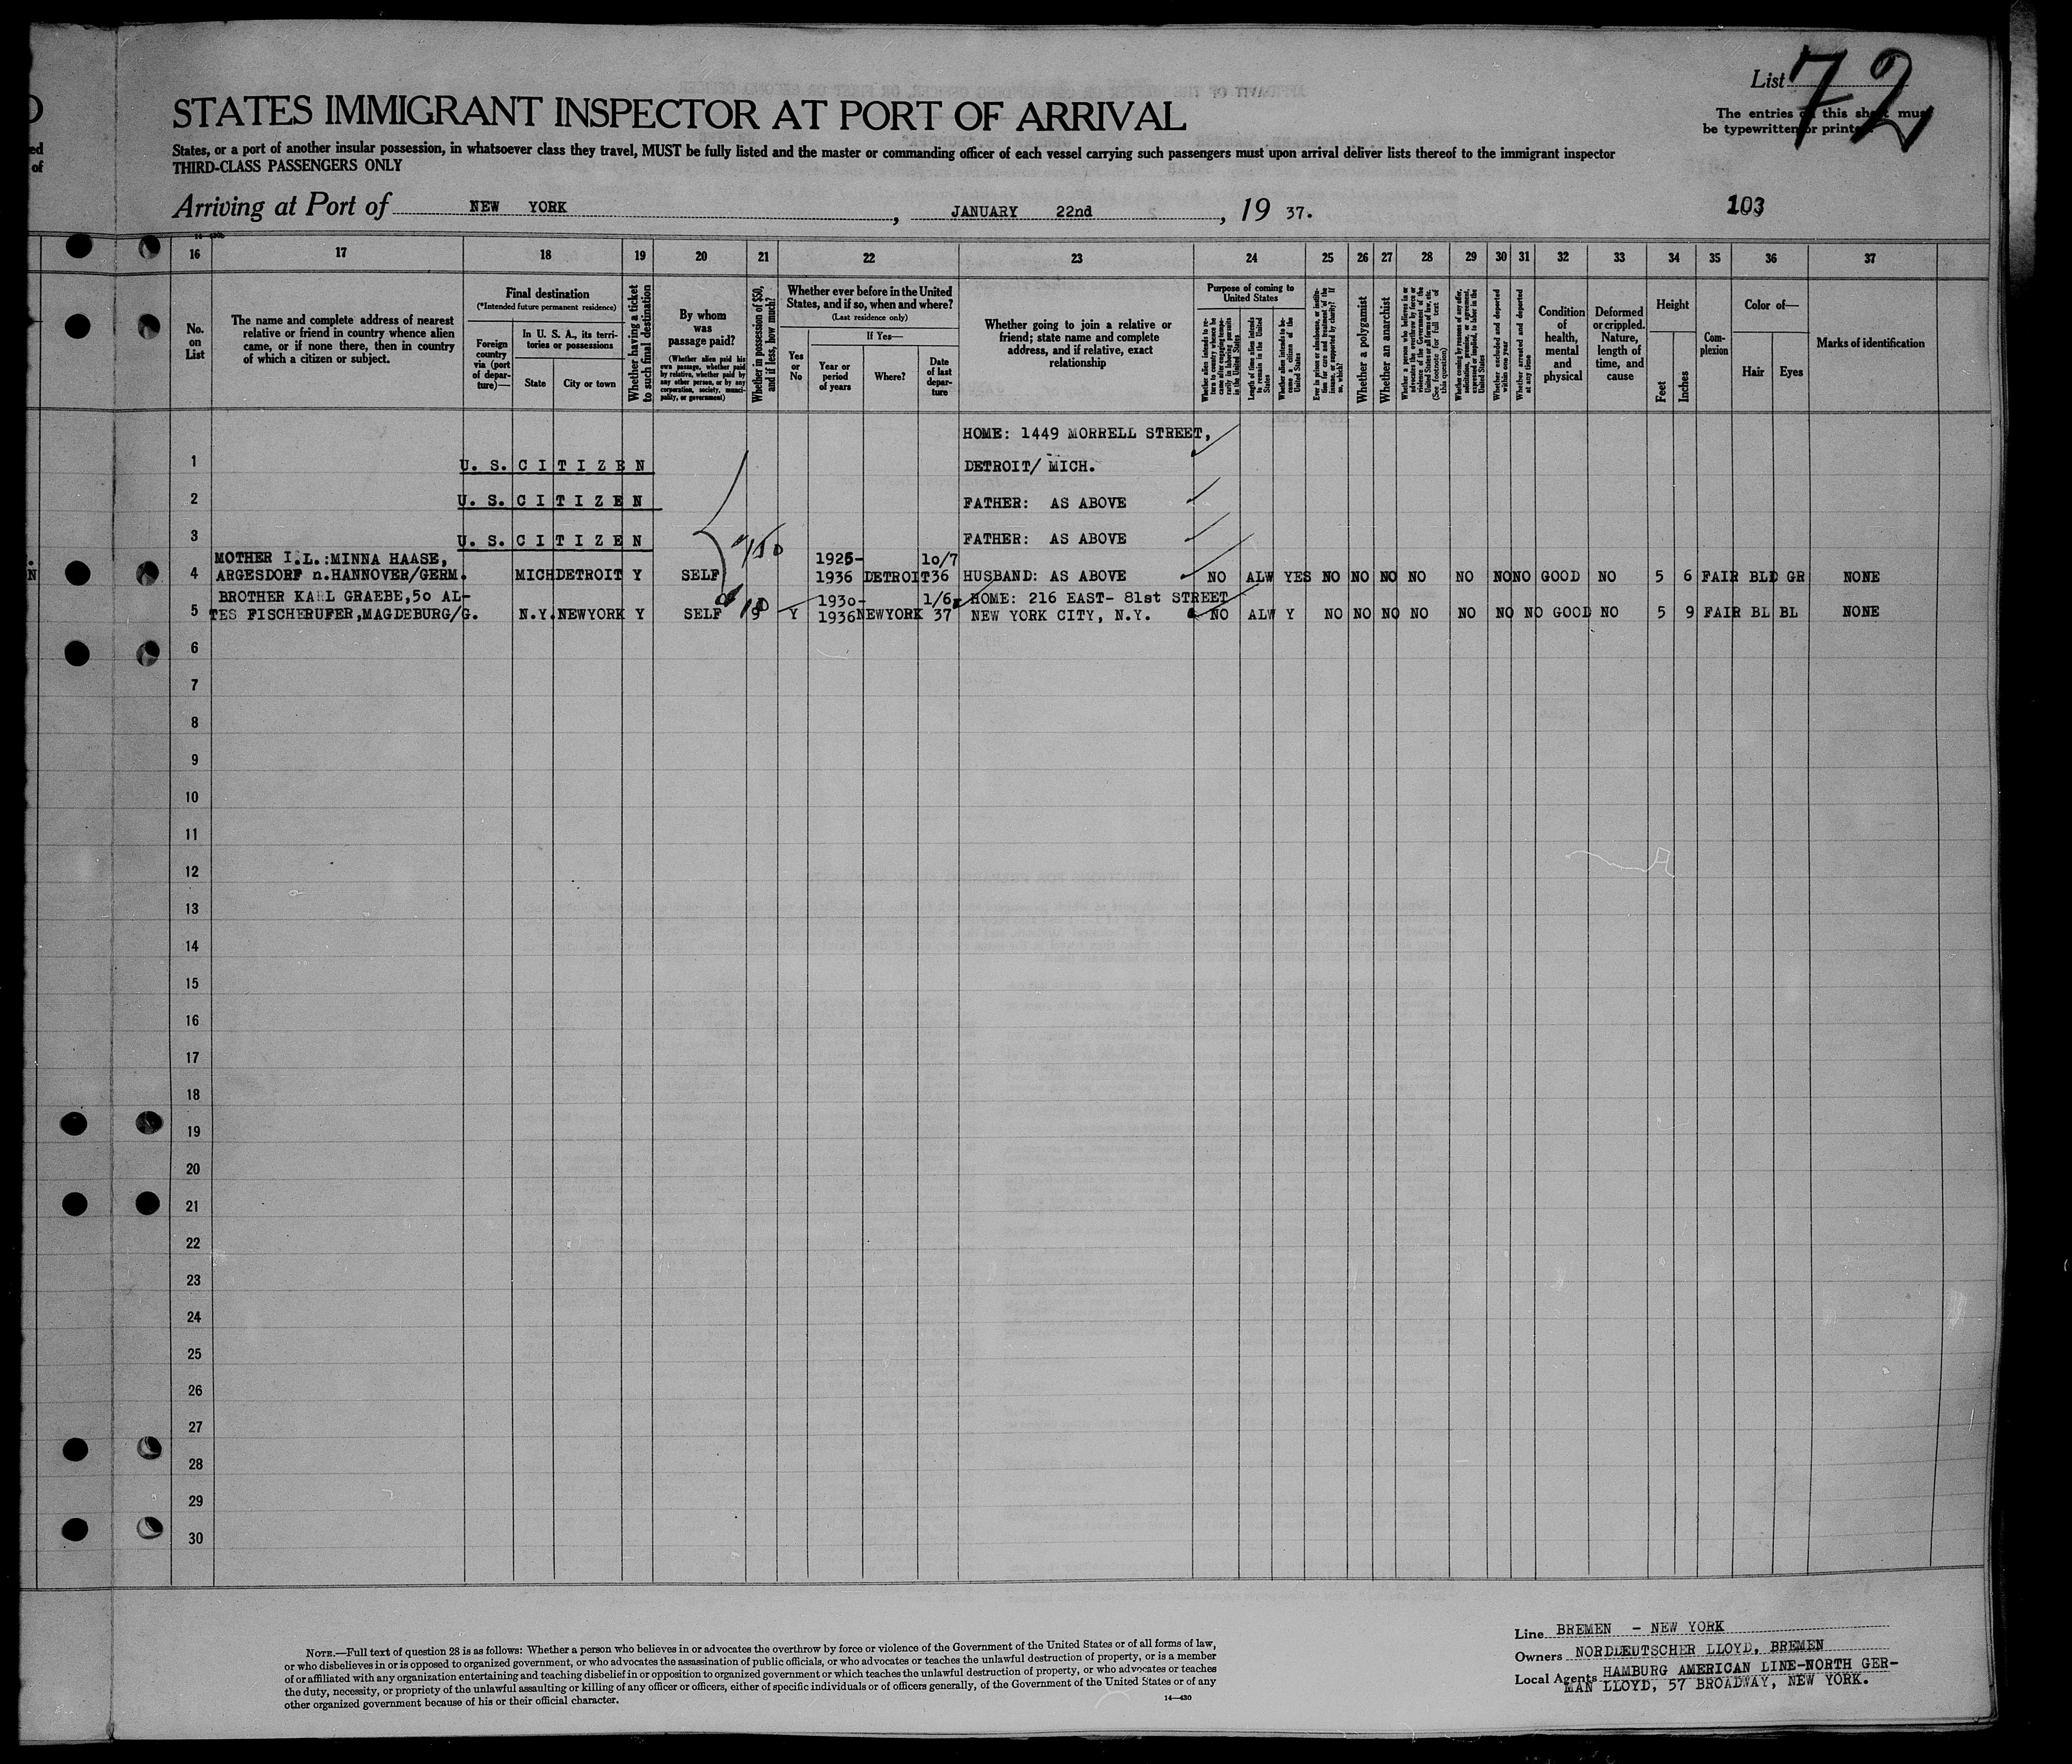 List 72
STATES IMMIGRANT INSPECTOR AT PORT OF ARRIVAL
The entries this must
be typewritten or printed.
States, or a port of another insular possession, in whatsoever class they travel, MUST be fully listed and the master or commanding officer of each vessel carrying such passengers must upon arrival deliver lists thereof to the immigrant inspector
THIRD-CLASS PASSENGERS ONLY
Arriving at Port of NEW YORK, JANUARY 22nd, 19 37.
103
16 17 18 19 20 21 22 23 24 25 26 27 28 29 30 31 32 33 34 35 36 37
No. on List
The name and complete address of nearest relative or friend in country whence alien came, or if none there, then in country of which a citizen or subject.
Final destination
(*Intended future permanent residence)
Foreign country via (port of departure)—
In U. S. A., its territories or possessions
State
City or town
Whether having a ticket to such final destination
By whom was passage paid?
(Whether alien paid his own passage, whether paid by relative, whether paid by any other person, or by any corporation, society, municipality, or government)
Whether in possession of $50, and if less, how much?
Whether ever before in the United States, and if so, when and where?
(Last residence only)
Yes or No
If Yes—
Year or period of years
Where?
Date of last departure
Whether going to join a relative or friend; state name and complete address, and if relative, exact relationship
Purpose of coming to United States
Whether alien intends to return to country whence he came after engaging temporarily in laboring pursuits in the United States
Length of time alien intends to remain in the United States
Whether alien intends to become a citizen of the United States
Ever in prison or almshouse, or institution for care and treatment of the insane, or supported by charity? If so, which?
Whether a polygamist
Whether an anarchist
Whether a person who believes in or advocates the overthrow by force or violence of the Government of the United States or all forms of law, etc. (See footnote for full text of this question)
Whether coming by reason of any offer, solicitation, promise, or agreement, expressed or implied, to labor in the United States
Whether excluded and deported within one year
Whether arrested and deported at any time
Condition of health, mental and physical
Deformed or crippled. Nature, length of time, and cause
Height
Feet
Inches
Complexion
Color of—
Hair
Eyes
Marks of identification
HOME: 1449 MORRELL STREET,
1 U. S. CITIZEN DETROIT/ MICH.
2 U. S. CITIZEN FATHER: AS ABOVE
3 U. S. CITIZEN FATHER: AS ABOVE
MOTHER I.L.:MINNA HAASE, 1925- 10/7
4 ARGESDORF n.HANNOVER/GERM. MICH DETROIT Y SELF 150 1936 DETROIT 36 HUSBAND: AS ABOVE NO ALW YES NO NO NO NO NO NO NO GOOD NO 5 6 FAIR BLD GR NONE
BROTHER KARL GRAEBE,5o AL- 1930- 1/6 HOME: 216 EAST- 81st STREET
5 TES FISCHERUFER,MAGDEBURG/G. N.Y. NEWYORK Y SELF Y 1936 NEWYORK 37 NEW YORK CITY, N.Y. NO ALW Y NO NO NO NO NO NO NO GOOD NO 5 9 FAIR BL BL NONE
6
7
8
9
10
11
12
13
14
15
16
17
18
19
20
21
22
23
24
25
26
27
28
29
30
NOTE.—Full text of question 28 is as follows: Whether a person who believes in or advocates the overthrow by force or violence of the Government of the United States or of all forms of law,
or who disbelieves in or is opposed to organized government, or who advocates the assassination of public officials, or who advocates or teaches the unlawful destruction of property, or is a member
of or affiliated with any organization entertaining and teaching disbelief in or opposition to organized government or which teaches the unlawful destruction of property, or who advocates or teaches
the duty, necessity, or propriety of the unlawful assaulting or killing of any officer or officers, either of specific individuals or of officers generally, of the Government of the United States or of any
other organized government because of his or their official character.
14—430
Line BREMEN - NEW YORK
Owners NORDDEUTSCHER LLOYD, BREMEN
Local Agents HAMBURG AMERICAN LINE-NORTH GER-
MAN LLOYD, 57 BROADWAY, NEW YORK.